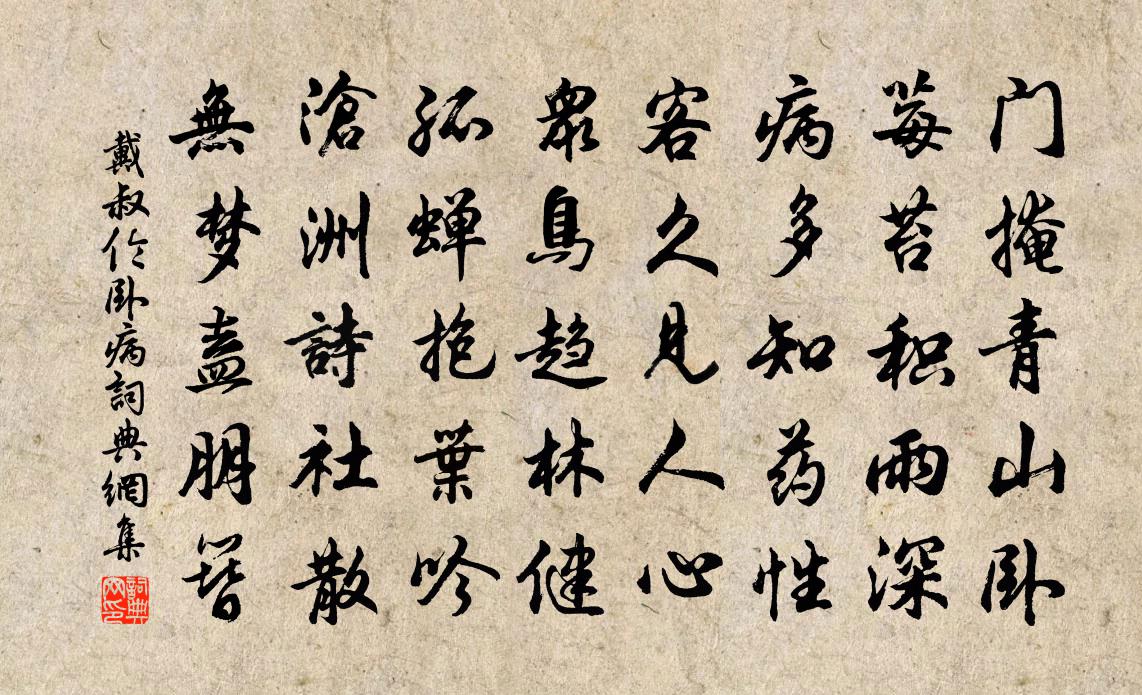 门掩青山卧
莓苔积雨深
病多知药性
客久见人心
眾鳥趋林健
孤蝉抱葉吟
滄洲詩社散
無梦盍朋簪
戴叔伦卧病詞典網集
詞典网印